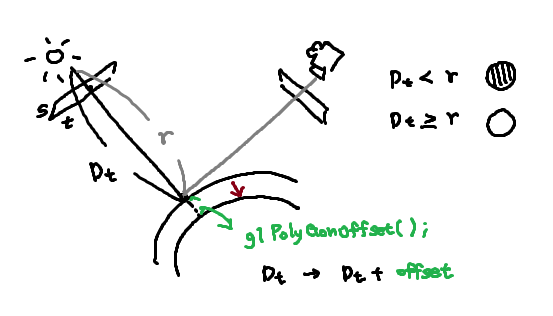 s
t
r
Dt
Dt < r
Dt ≥ r
glPolygonOffset();
Dt → Dt + offset